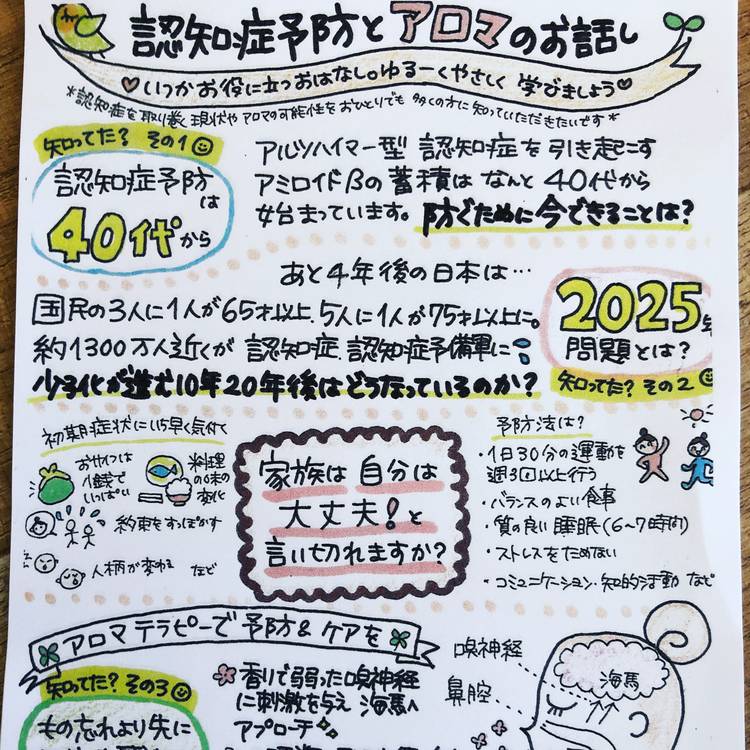 認知症予防とアロマのお話し
♡いつかお役に立つおはなし。ゆるーくやさしく 学びましょう♡
*認知症を取り巻く現状やアロマの可能性をおひとりでも多くの方に知っていただきたいです*
知ってた? その1
認知症予防
は
40代から
アルツハイマー型 認知症を引き起こす
アミロイドβの蓄積は なんと 40代から
始まっています。防ぐために今できることは?
あと4年後の日本は…
国民の3人に1人が65才以上、5人に1人が75才以上に。
約1300万人近くが 認知症、認知症予備軍に
少子化が進む10年20年後はどうなっているのか?
2025年
問題とは?
知ってた? その2
初期症状にいち早く気付く
おサイフは
小銭で
いっぱい
料理
の味の
変化
約束をすっぽかす
人柄が変わる など
家族は 自分は
大丈夫!と
言い切れますか?
予防法は?
・1日30分の運動を
週3回以上行う
・バランスのよい食事
・質の良い睡眠(6~7時間)
・ストレスをためない
・コミュニケーション・知的活動 など
アロマテラピーで予防&ケアを
知ってた? その3
もの忘れより先に
香りで弱った嗅神経
に刺激を与え 海馬へ
アプローチ
嗅神経
鼻腔
海馬